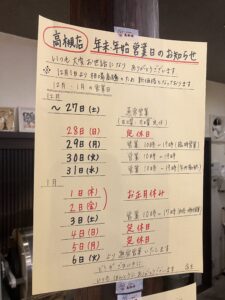 高槻店 年末年始 営業日のお知らせ
いつも大変お世話になり ありがとうございます
12月・1月の営業日
12月
〜27日(土) 通常営業
28日(日) 定休日
29日(月) 営業 10時〜19時(臨時営業)
30日(火) 営業 10時〜19時
31日(水) 営業 10時〜17時
1月
1日(木)
2日(金) お正月休み
3日(土) 営業 10時〜17時
4日(日) 定休日
5日(月) 定休日
6日(火) より 通常営業いたします